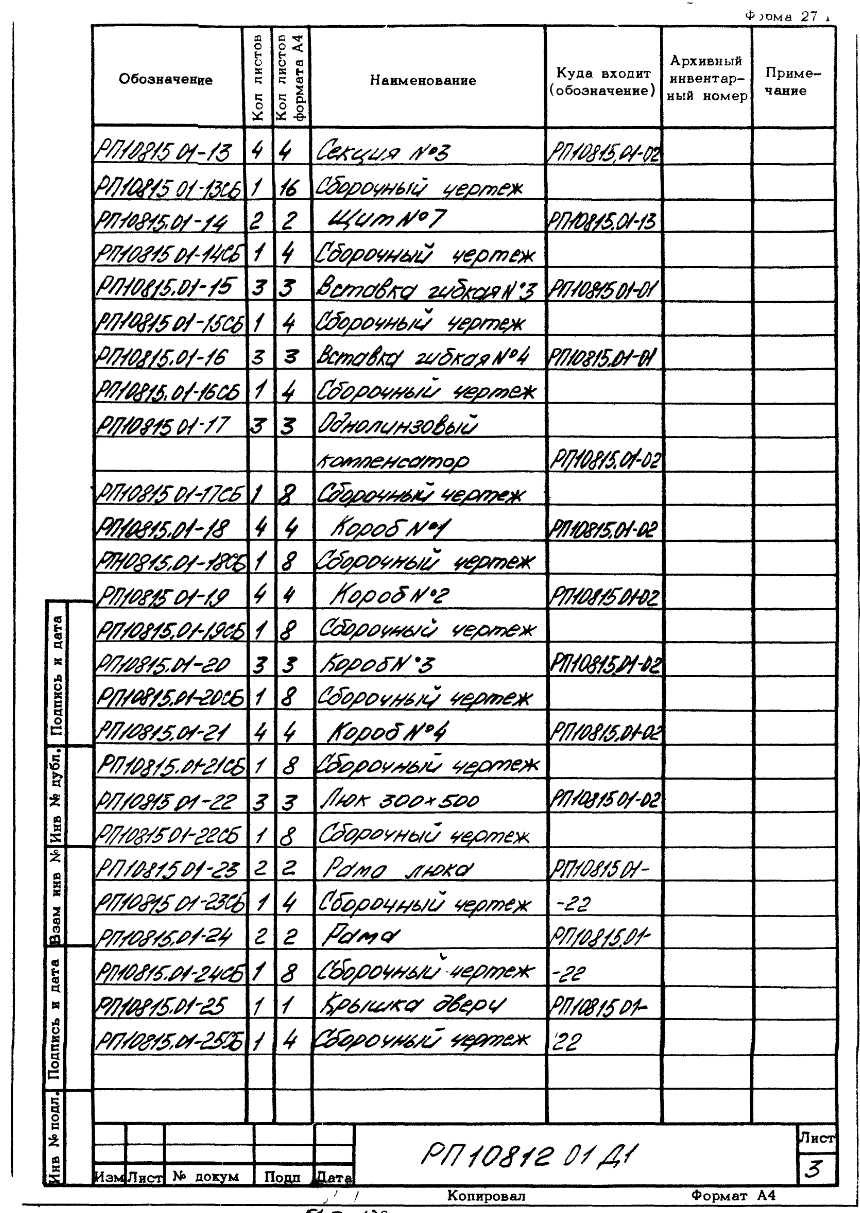 Форма 27
Обозначение | Кол листов | Кол листов формата А4 | Наименование | Куда входит (обозначение) | Архивный инвентарный номер | Примечание
РП10815 01-13 4 4 Секция №3 РП10815.01-02
РП10815 01-13СБ 1 16 Сборочный чертеж
РП10815.01-14 2 2 Щит №7 РП10815.01-13
РП10815.01-14СБ 1 4 Сборочный чертеж
РП10815.01-15 3 3 Вставка гибкая №3 РП10815.01-01
РП10815.01-15СБ 1 4 Сборочный чертеж
РП10815.01-16 3 3 Вставка гибкая №4 РП10815.01-01
РП10815.01-16СБ 1 4 Сборочный чертеж
РП10815 01-17 3 3 Однолинзовый
компенсатор РП10815.01-02
РП10815 01-17СБ 1 8 Сборочный чертеж
РП10815.01-18 4 4 Короб №1 РП10815.01-02
РП10815.01-18СБ 1 8 Сборочный чертеж
РП10815 01-19 4 4 Короб №2 РП10815 01-02
РП10815.01-19СБ 1 8 Сборочный чертеж
РП10815.01-20 3 3 Короб №3 РП10815.01-02
РП10815.01-20СБ 1 8 Сборочный чертеж
РП10815.01-21 4 4 Короб №4 РП10815.01-02
РП10815.01-21СБ 1 8 Сборочный чертеж
РП10815 01-22 3 3 Люк 300×500 РП10815 01-02
РП10815 01-22СБ 1 8 Сборочный чертеж
РП10815 01-23 2 2 Рама люка РП10815 01-
РП10815 01-23СБ 1 4 Сборочный чертеж -22
РП10815.01-24 2 2 Рама РП10815.01-
РП10815.01-24СБ 1 8 Сборочный чертеж -22
РП10815.01-25 1 1 Крышка двери РП10815 01-
РП10815.01-25СБ 1 4 Сборочный чертеж 22
Подпись и дата
Инв № дубл.
Взам инв №
Подпись и дата
Инв № подл.
Изм Лист № докум Подп Дата
РП10812 01 Д1
Лист
3
Копировал Формат А4